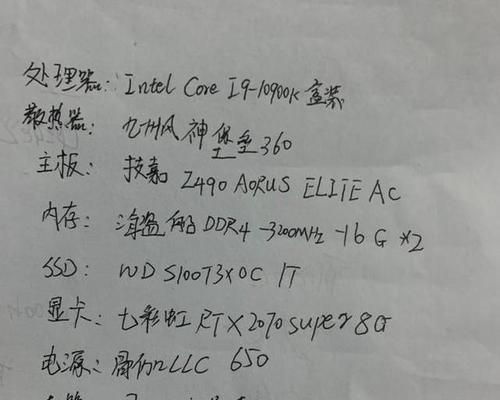 处理器: Intel Core I9-10900K 盒装
散热器: 九州风神堡垒360
主板: 技嘉 Z490 AORUS ELITE AC
内存: 海盗船 DDR4-3200MHz-16G*2
SSD: WD S100T3X0C 1T
显卡: 七彩虹 RTX2070super8G
电源: LLC 650